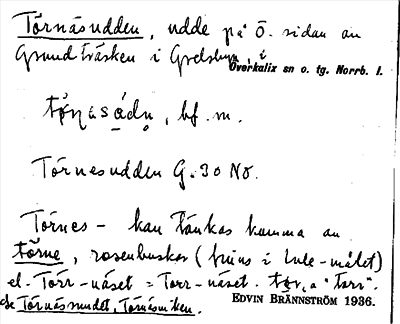 Törnäsudden, udde på Ö. sidan av
Grundträsken i Grelsbyn, i
Överkalix sn o. tg. Norrb. l.
bf. m.
Törnesudden G. 30 NO.
Törnes- kan tänkas komma av
törne, rosenbuskar (finns i Lule-målet)
el. Törr-näset = Torr-näset. "torr".
Törnäsundet, Törnäsviken.
EDVIN BRÄNNSTRÖM 1936.